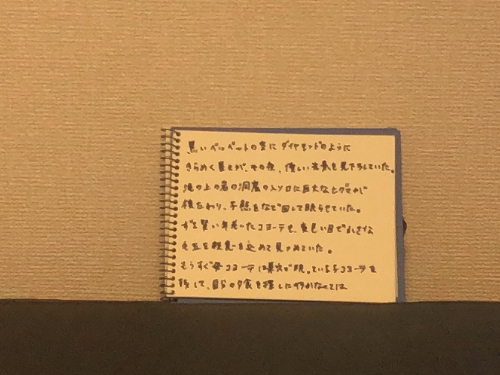 黒いベルベットの空に ダイヤモンドのように
きらめく星々が、その夜、優しい 光を見下ろしていた。
滝の上の 洞窟の入り口に巨大なヒグマが
横たわり、子熊をなで回して眠らせていた。
ずる賢い年老いたコヨーテも、黄色い目で小さな
毛玉を を込めて見つめていた。
もうすぐ母コヨーテは巣穴で眠っている子コヨーテを
残して、自らの夕食を探しに行かなくては